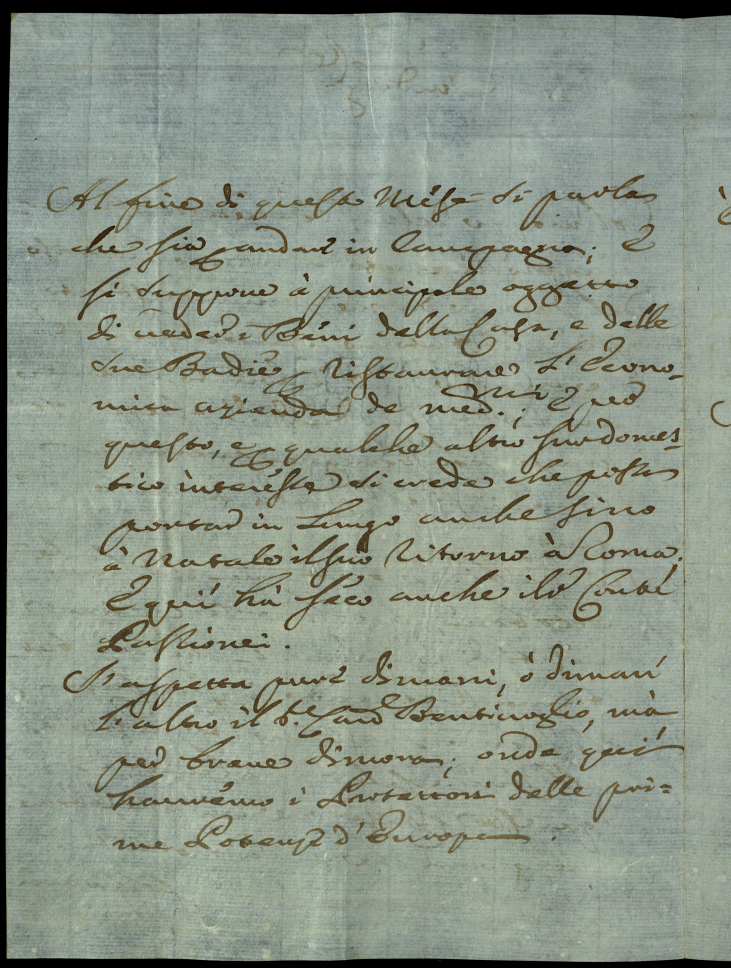 Al fine di questo Mese si parla
che sia p andare in Campagna; E
si suppone à principale oggetto
di veder i Beni della Casa, e delle
sue Badie, p ristaurare l'Econo-
mica azienda de med.mi; E per
questo, e p qualche altro suo domes-
tico interesse si crede che possa
portar in lungo anche sino
à Natale il suo ritorno à Roma.
E quì hà seco anche il Conte
Passionei.
S'aspetta pure dimani, ò diman
l'altro il S.r Card Bentivoglio, mà
per breve dimora; onde quì
havremo i Protettori delle pri=
me Potenze d'Europa.